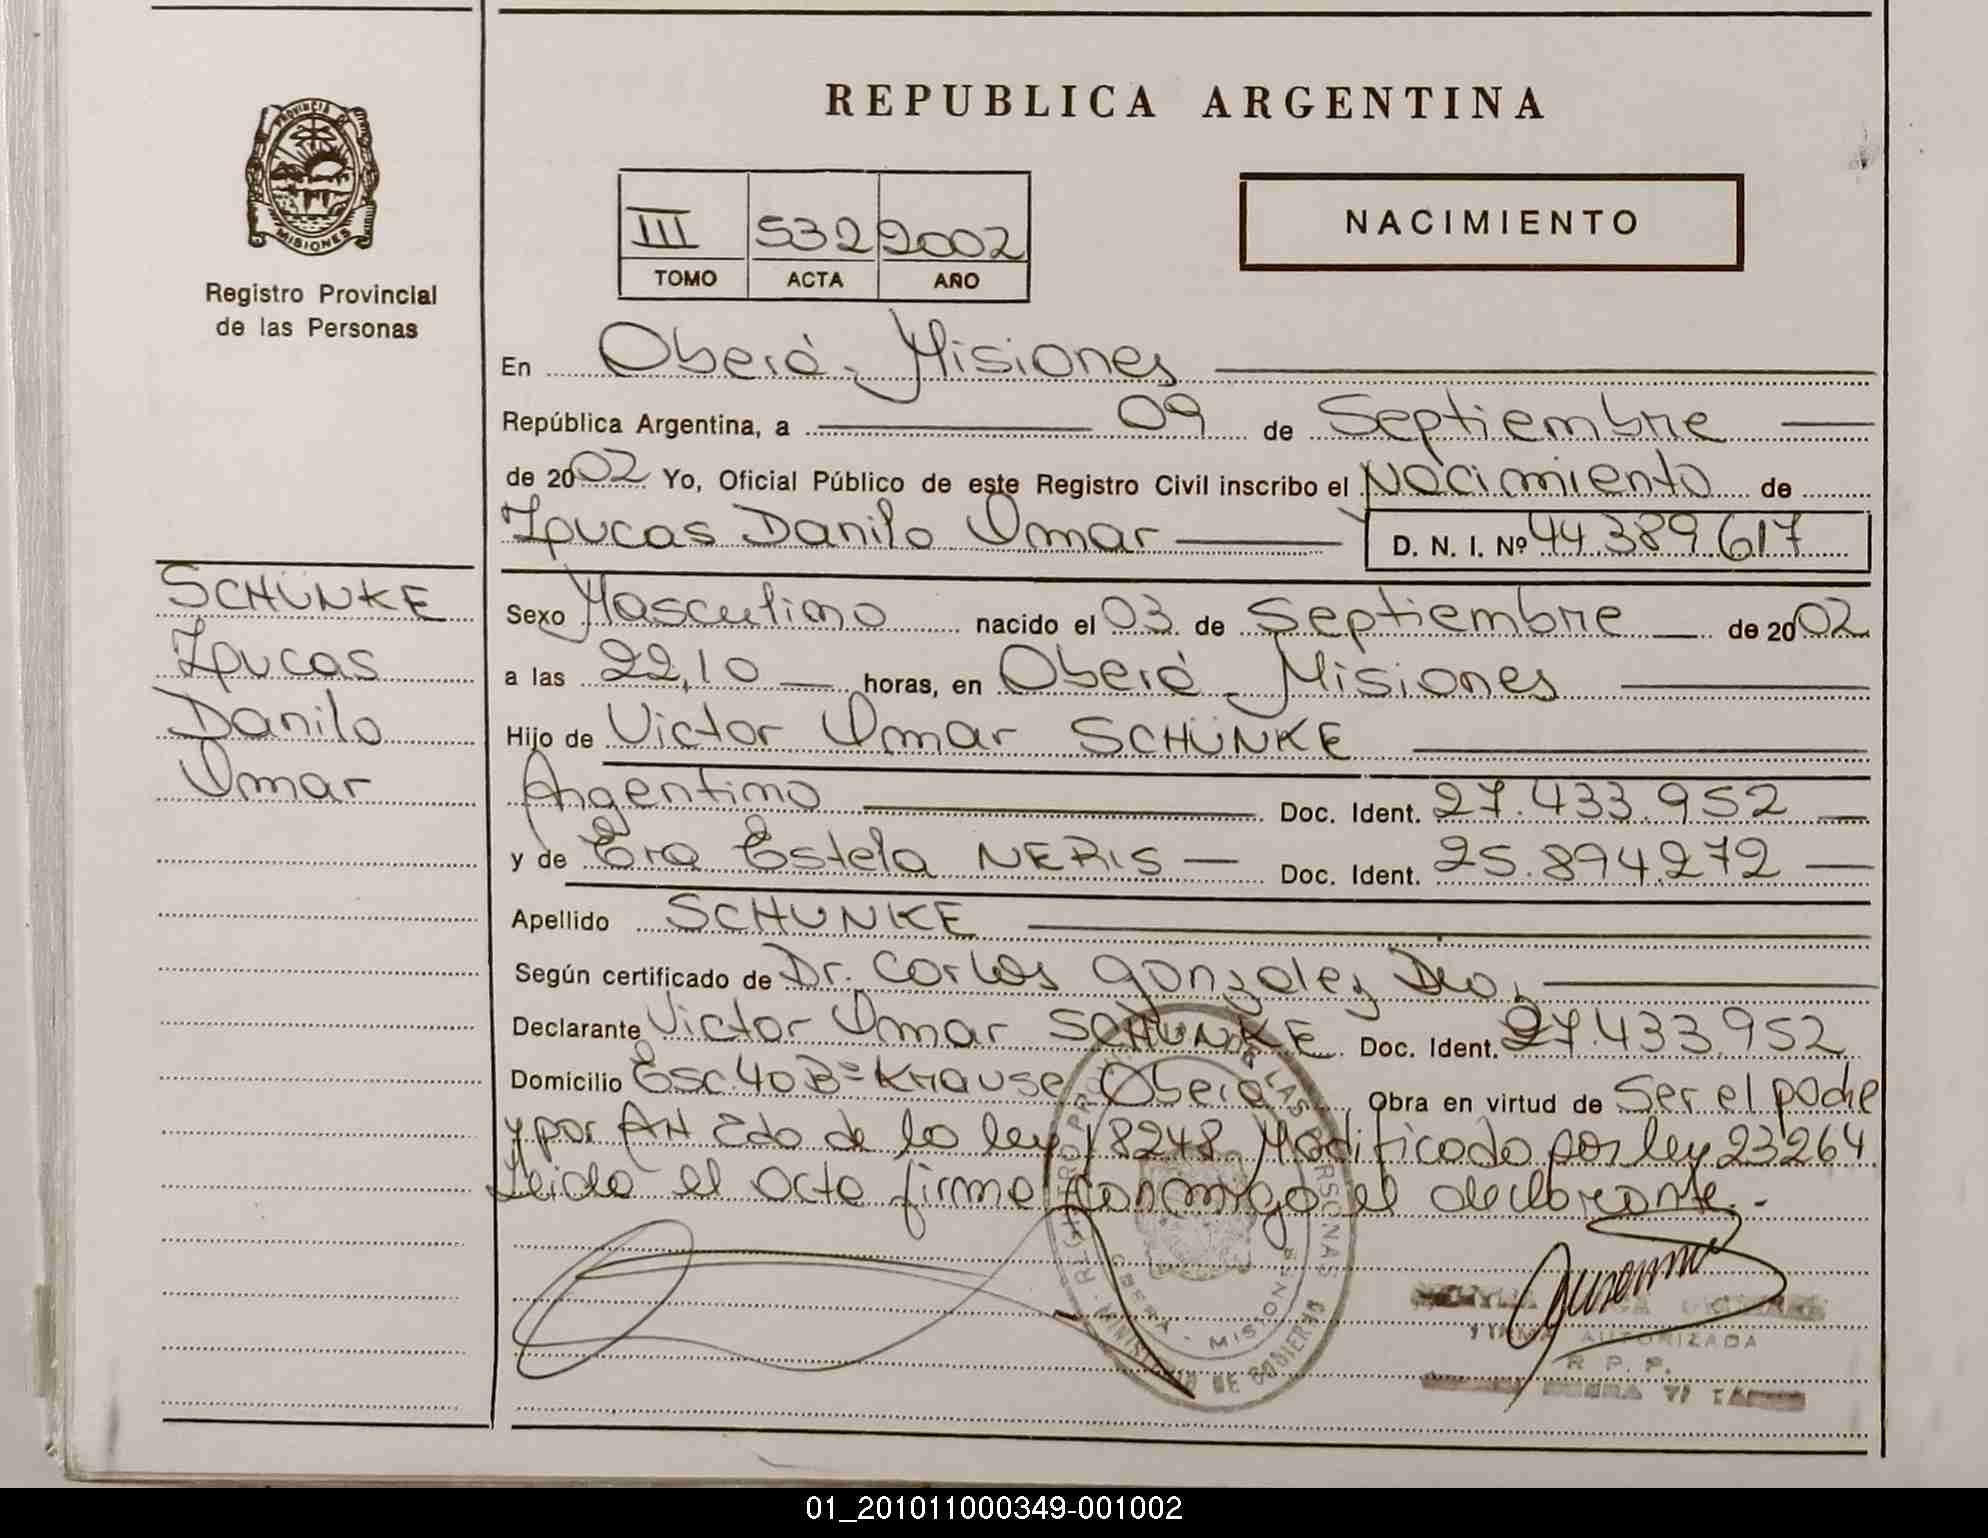 REPUBLICA ARGENTINA
PROVINCIA DE
MISIONES
Registro Provincial
de las Personas
III 532 2002
TOMO ACTA AÑO
NACIMIENTO
En Oberá - Misiones
República Argentina, a 09 de Septiembre
de 2002 Yo, Oficial Público de este Registro Civil inscribo el Nacimiento de
Lucas Danilo Omar D. N. I. Nº 44 389 617
SCHÜNKE
Lucas
Danilo
Omar
Sexo Masculino nacido el 03 de Septiembre de 2002
a las 22,10 horas, en Oberá - Misiones
Hijo de Victor Omar SCHÜNKE
Argentino Doc. Ident. 27.433.952
y de Estela NERIS Doc. Ident. 25.894.272
Apellido SCHUNKE
Según certificado de Dr. Carlos Gonzalez
Declarante Victor Omar SCHUNKE Doc. Ident. 27.433.952
Domicilio Esc. 40 Bº Krause Oberá, Obra en virtud de Ser el padre
y por Art 2do de la ley 18248 Modificado por ley 23264.
Leida el acta firma conmigo el declarante.-
REGISTRO PROV DE LAS PERSONAS
OBERA - MISIONES
MINISTERIO DE GOBIERNO
FIRMA AUTORIZADA
R. P. P.
01_201011000349-001002